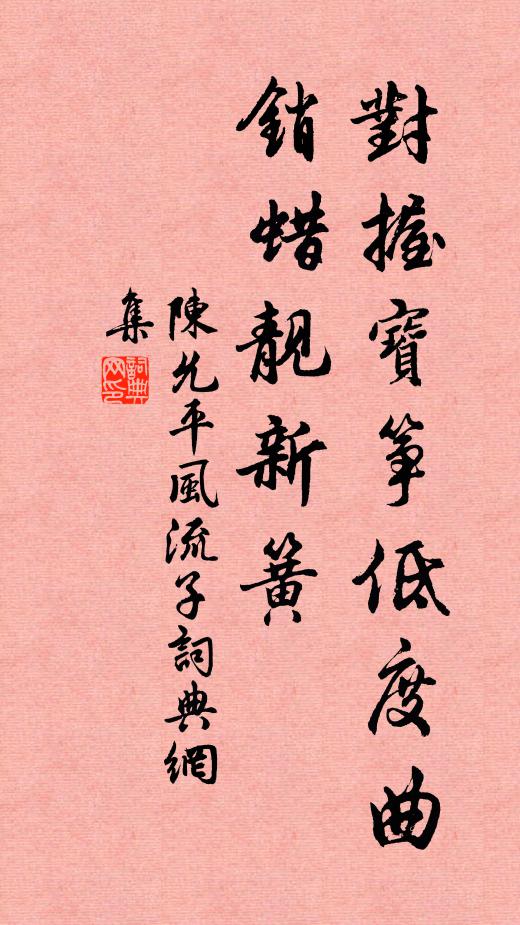 對握寶箏低度曲
銷蜡靚新簧
陳允平風流子詞典網
集
詞典网印